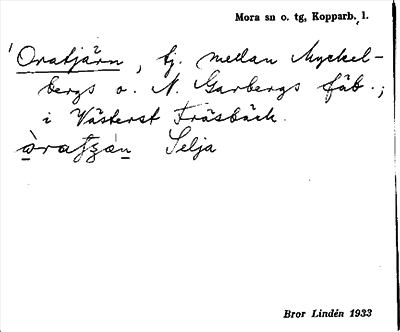 Mora sn o. tg, Kopparb. l.
Oratjärn, tj. mellan Myckel-
bergs o. N. Garbergs fäb.;
i Västerst Fräsbäck.
Selja
Bror Lindén 1933